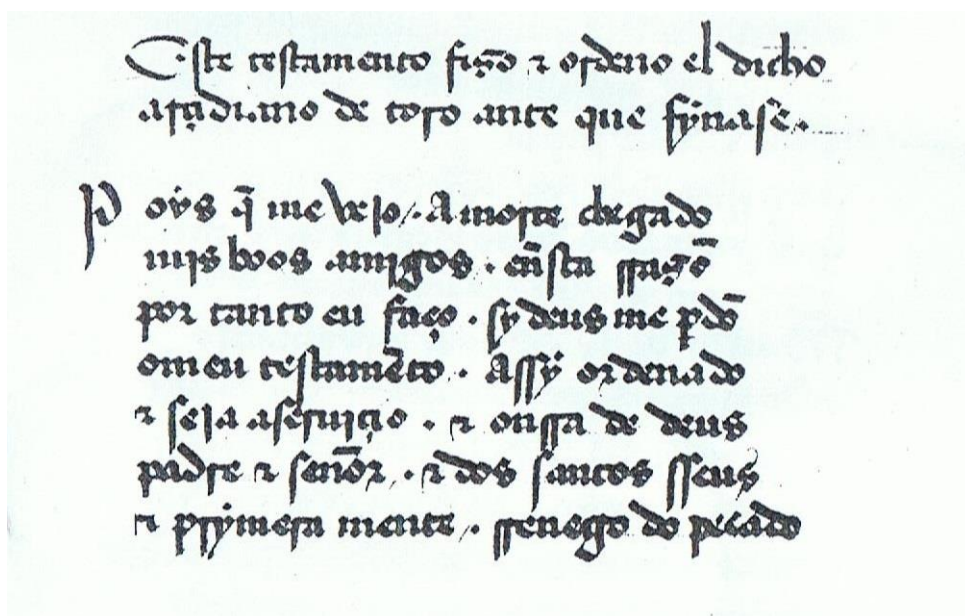 Este testamento fizõ & ordeno el dicho
arçidiano de toro ante que fỹnase.
Poys q̃ me vejo /. A morte chegado
mis boos amigos . en̄sta ssazõ
por tanto eu faço . sy deus me ꝑdõ
o meu testamẽto . Assy ordenado
& seja aseruiçio . & onrra de deus
padre & senõr /. & dos santos sseus
& prymera mente /. rrenego do pecado